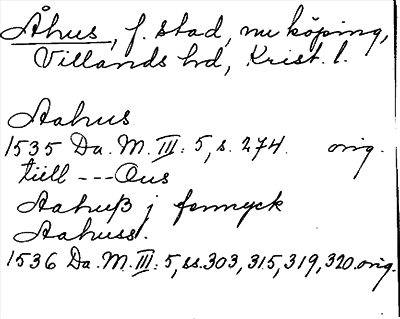 Åhus, f. stad, nu köping,
Villands hd, Krist. l.
Aahus
1535 Da. M. III: 5, s. 274. orig.
tiill --- Ous
Aahuß j fennyck
Aahuss.
1536 Da. M. III: 5, ss. 303, 315, 319, 320. orig.